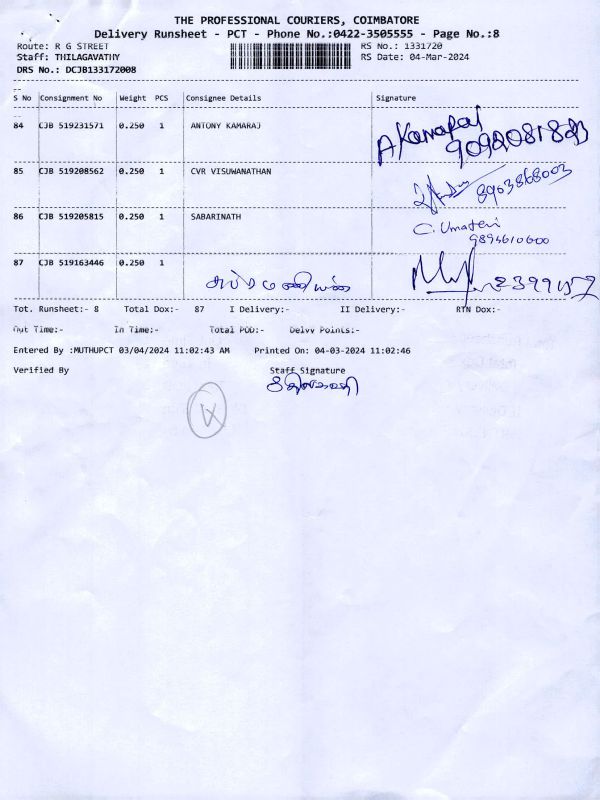 THE PROFESSIONAL COURIERS, COIMBATORE
Delivery Runsheet - PCT - Phone No.:0422-3505555 - Page No.:8
Route: R G STREET RS No.: 1331720
Staff: THILAGAVATHY RS Date: 04-Mar-2024
DRS No.: DCJB133172008
S No Consignment No Weight PCS Consignee Details Signature
84 CJB 519231571 0.250 1 ANTONY KAMARAJ A Kamaraj
85 CJB 519208562 0.250 1 CVR VISUWANATHAN 8903868003
86 CJB 519205815 0.250 1 SABARINATH C. Umadevi
9894610600
87 CJB 519163446 0.250 1
Tot. Runsheet:- 8 Total Dox:- 87 I Delivery:- II Delivery:- RTN Dox:-
Out Time:- In Time:- Total POD:- Delvy Points:-
Entered By :MUTHUPCT 03/04/2024 11:02:43 AM Printed On: 04-03-2024 11:02:46
Verified By Staff Signature